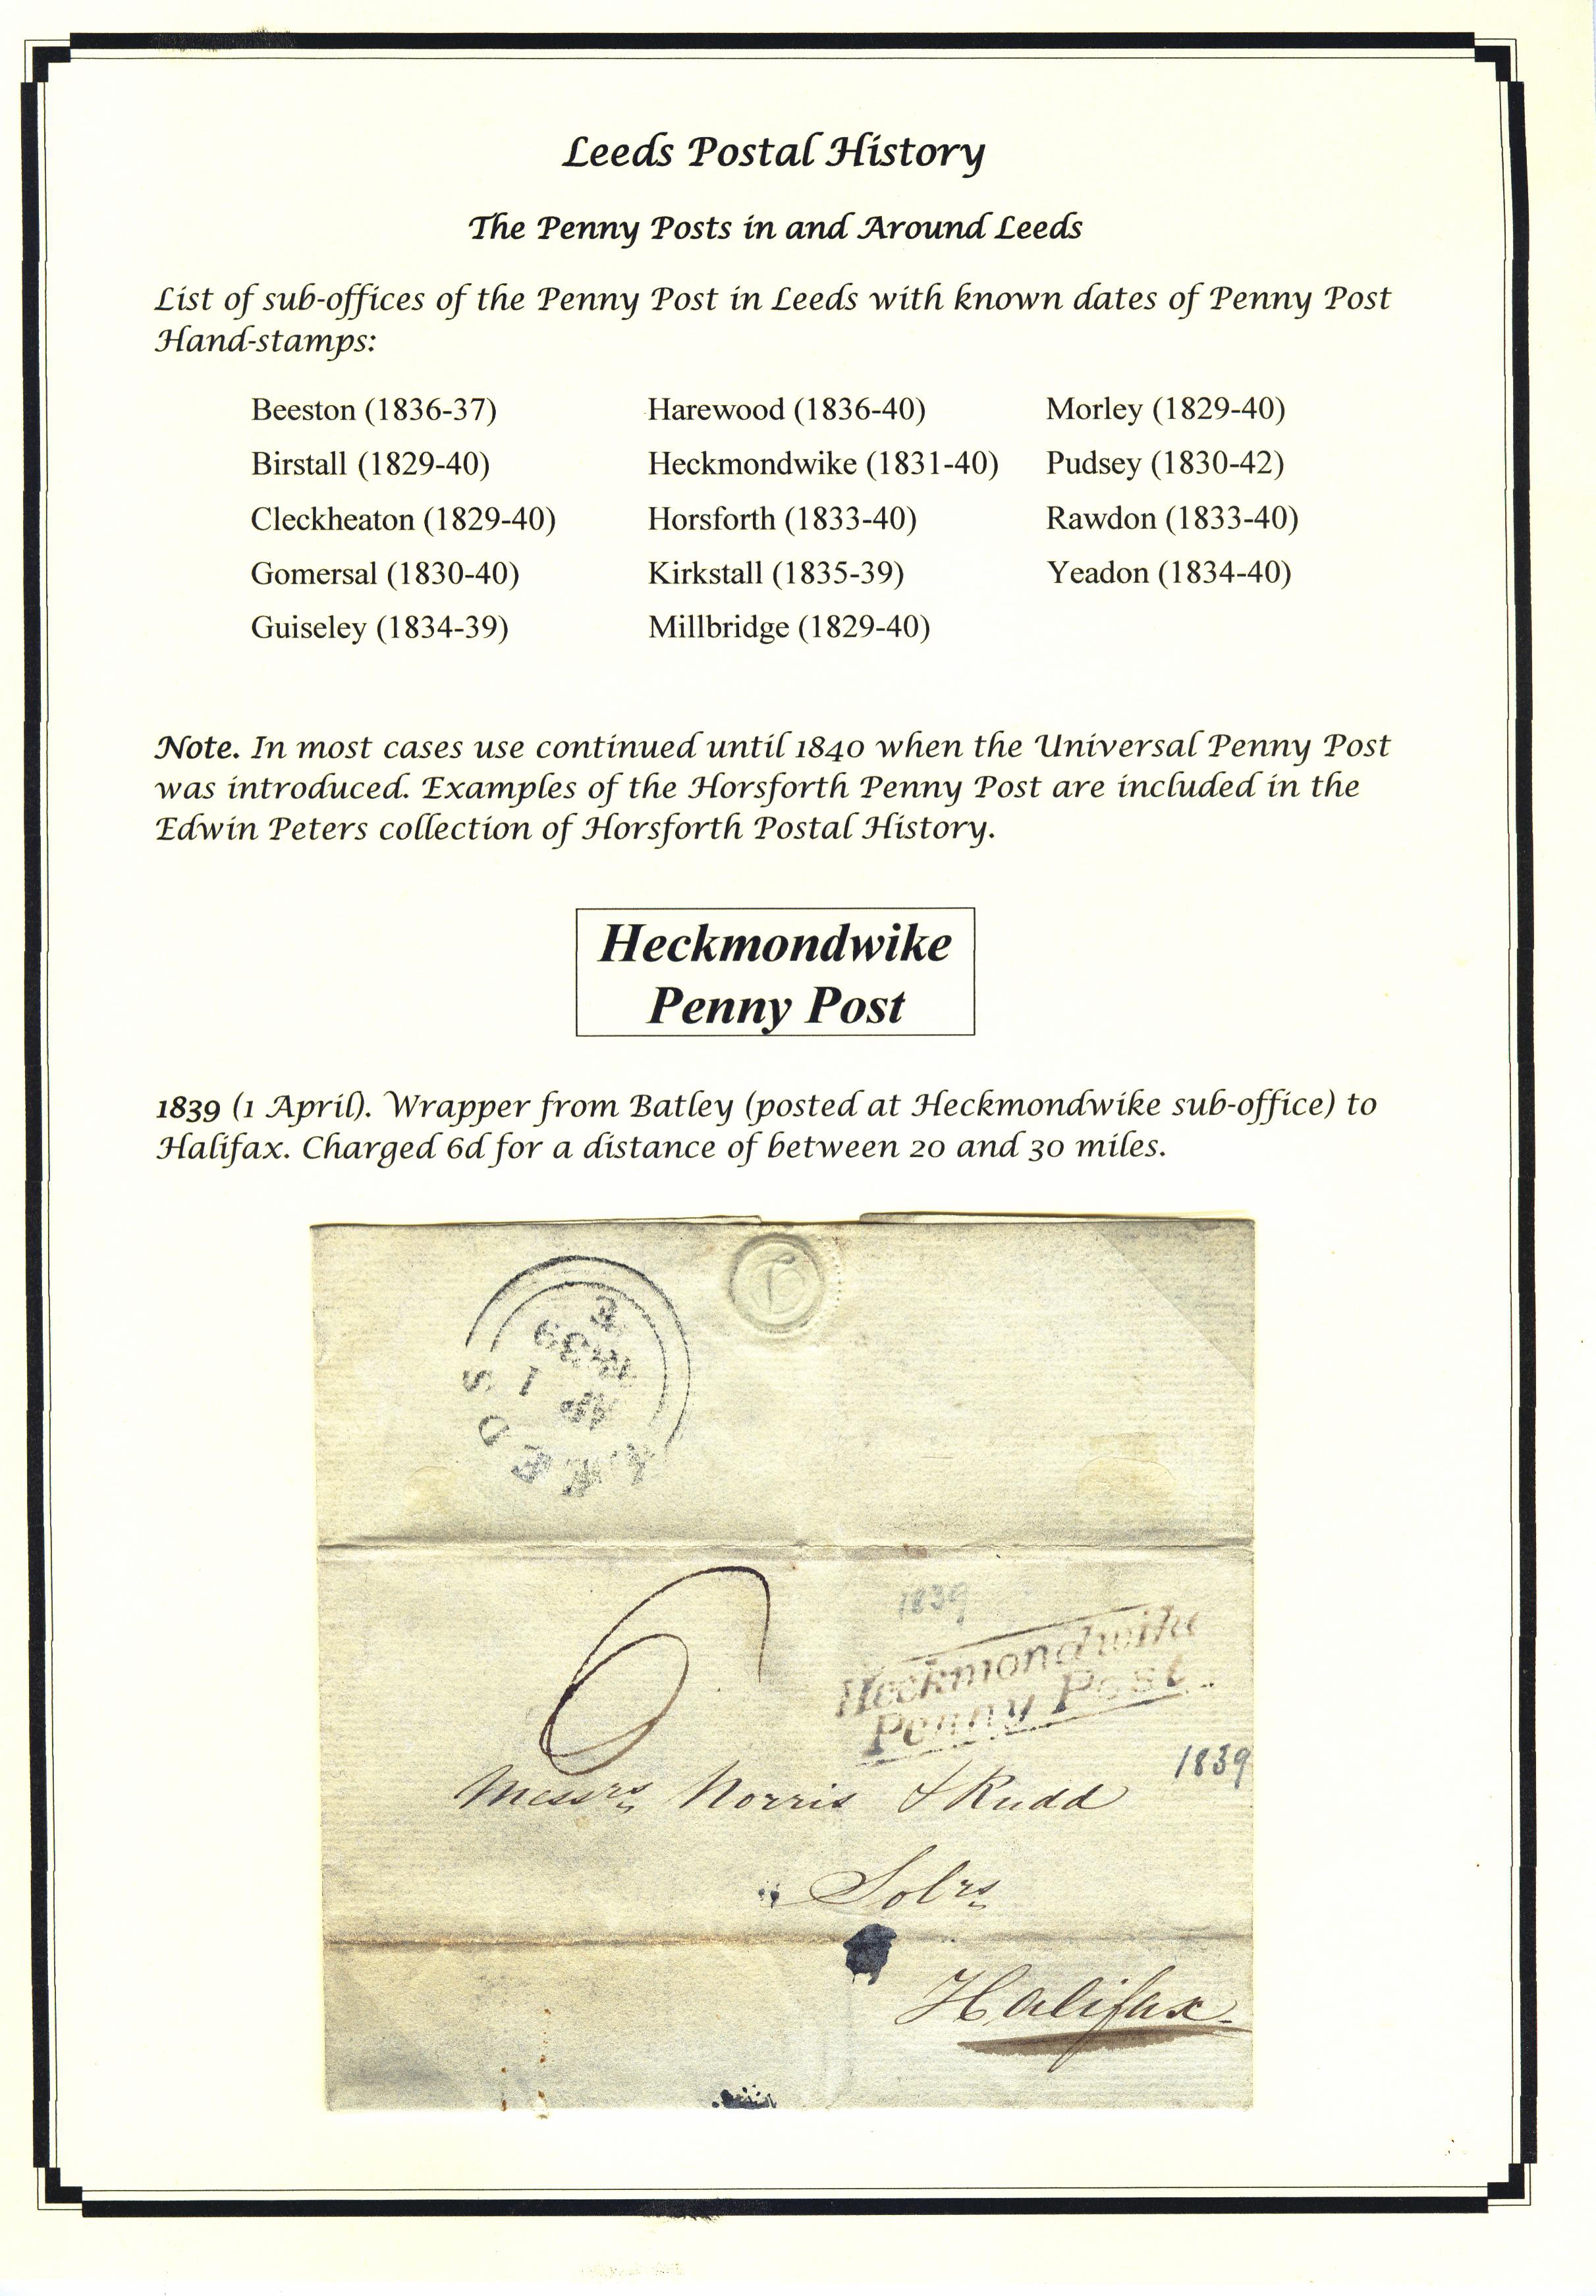 Leeds Postal History
The Penny Posts in and Around Leeds
List of sub-offices of the Penny Post in Leeds with known dates of Penny Post
Hand-stamps:
Beeston (1836-37)
Birstall (1829-40)
Cleckheaton (1829-40)
Gomersal (1830-40)
Guiseley (1834-39)
Harewood (1836-40)
Heckmondwike (1831-40)
Horsforth (1833-40)
Kirkstall (1835-39)
Millbridge (1829-40)
Morley (1829-40)
Pudsey (1830-42)
Rawdon (1833-40)
Yeadon (1834-40)
Note. In most cases use continued until 1840 when the Universal Penny Post
was introduced. Examples of the Horsforth Penny Post are included in the
Edwin Peters collection of Horsforth Postal History.
Heckmondwike
Penny Post
1839 (1 April). Wrapper from Batley (posted at Heckmondwike sub-office) to
Halifax. Charged 6d for a distance of between 20 and 30 miles.
LEEDS
AP 1
1839
6
1839
Heckmondwike
Penny Post
1839
Messrs Norris & Rudd
Solrs
Halifax